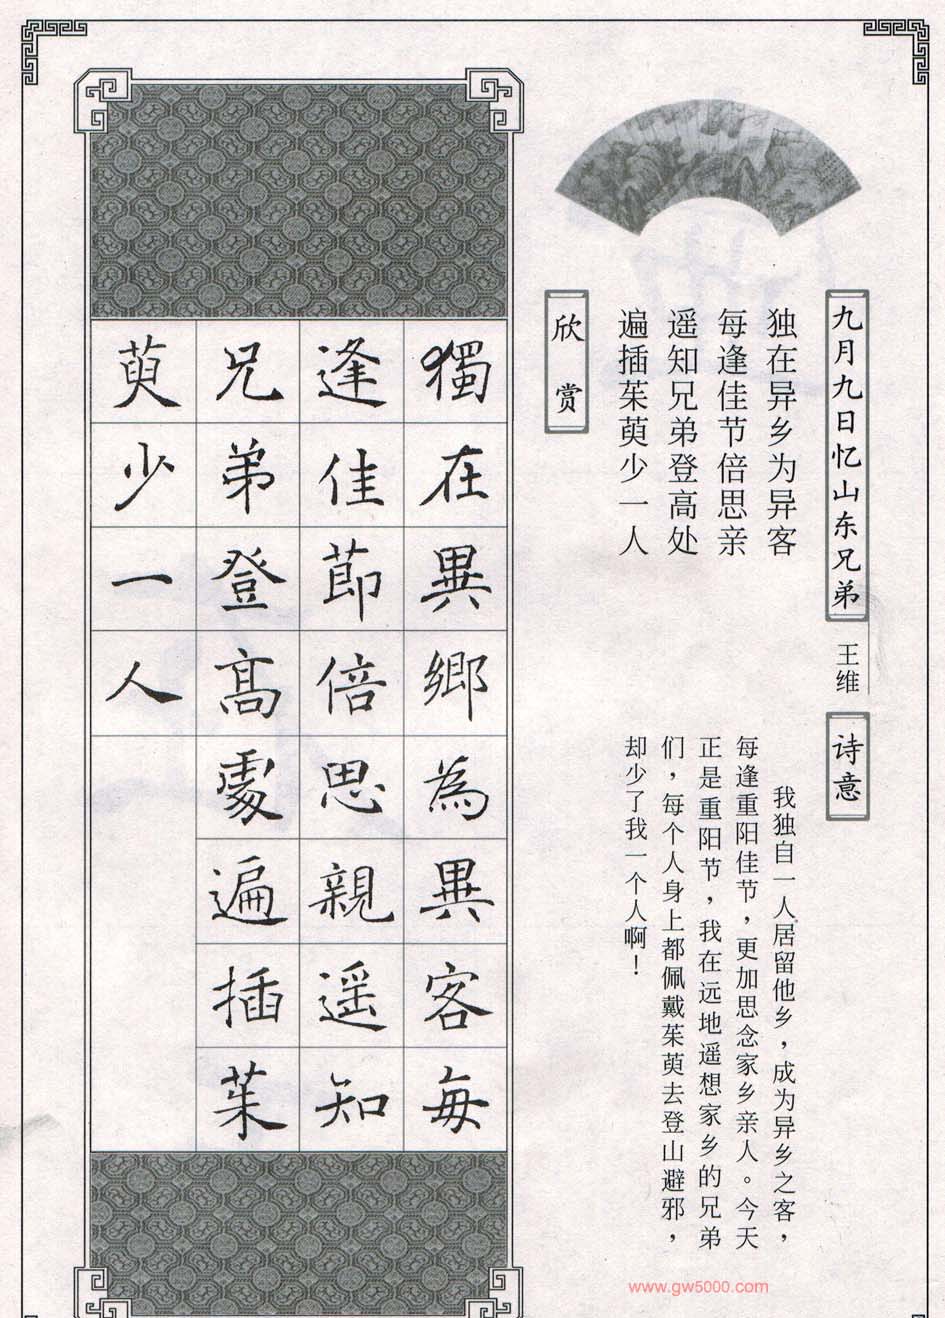 九月九日忆山东兄弟
王维
独在异乡为异客
每逢佳节倍思亲
遥知兄弟登高处
遍插茱萸少一人
诗意
我独自一人居留他乡，成为异乡之客，
每逢重阳佳节，更加思念家乡亲人。今天
正是重阳节，我在远地遥想家乡的兄弟
们，每个人身上都佩戴茱萸去登山避邪，
却少了我一个人啊！
欣赏
獨在異鄉為異客每
逢佳節倍思親遥知
兄弟登高處遍插茱
萸少一人
www.gw5000.com